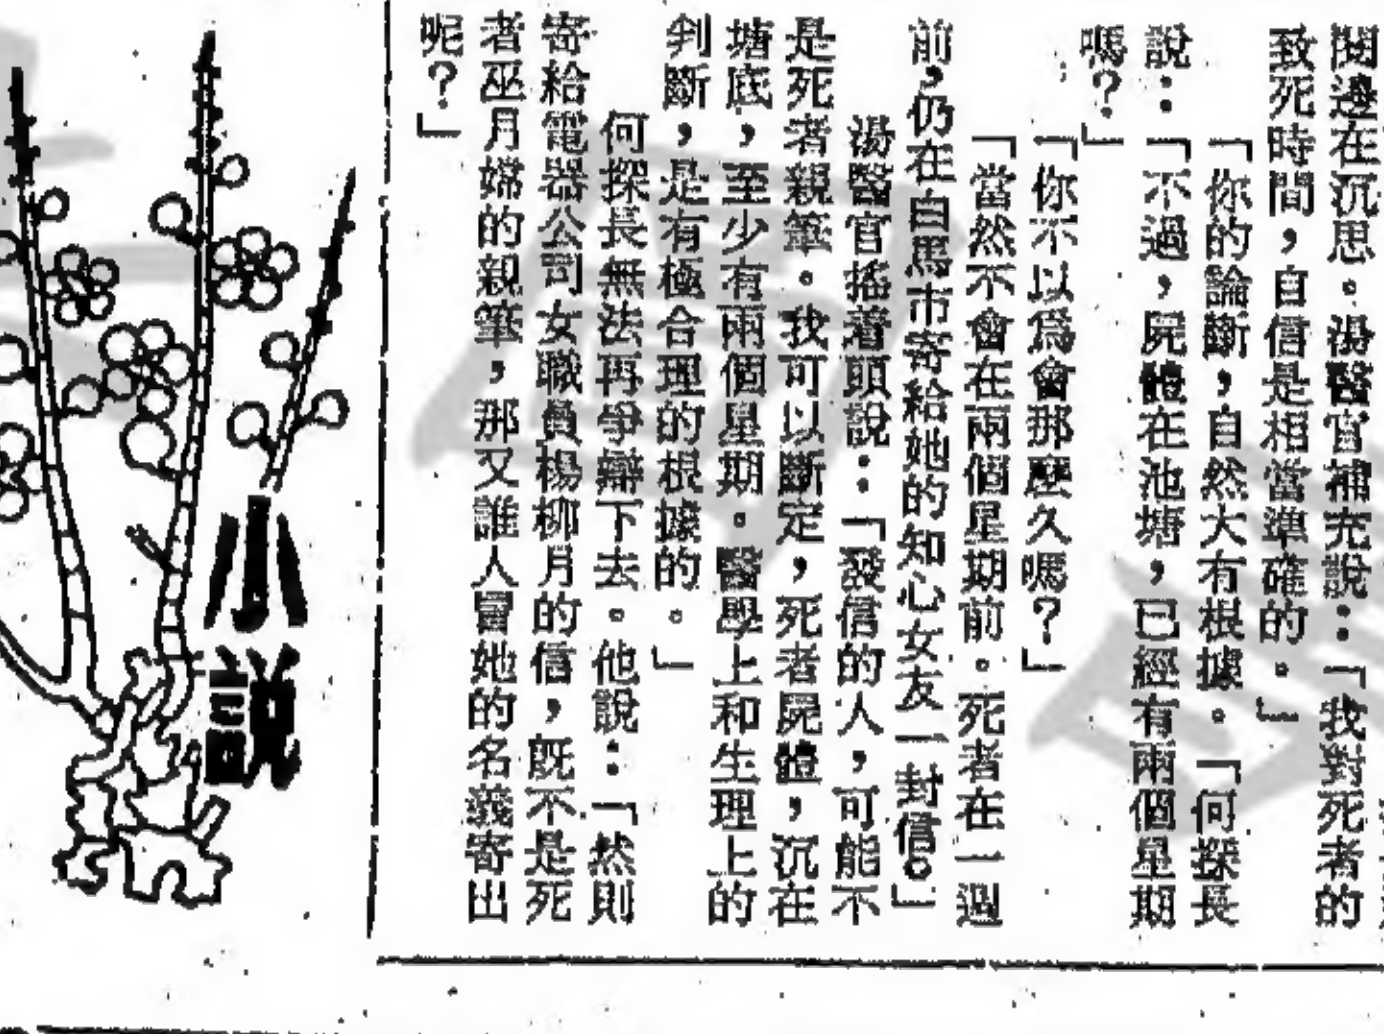 閱邊在沉思。湯醫官補充說：「我對死者的
致死時間，自信是相當準確的。」
「你的論斷，自然大有根據。「何探長
說：「不過，屍體在池塘，已經有兩個星期
嗎？」
「你不以為會那麼久嗎？」
「當然不會在兩個星期前。死者在一週
前，仍在白馬市寄給她的知心女友一封信。」
湯醫官搖着頭說：「發信的人，可能不
是死者親筆。我可以斷定，死者屍體，沉在
塘底，至少有兩個星期。醫學上和生理上的
判斷，是有極合理的根據的。」
何探長無法再爭辯下去。他說：「然則
寄給電器公司女職員楊柳月的信，既不是死
者巫月嫦的親筆，那又誰人冒她的名義寄出
呢？」
小說